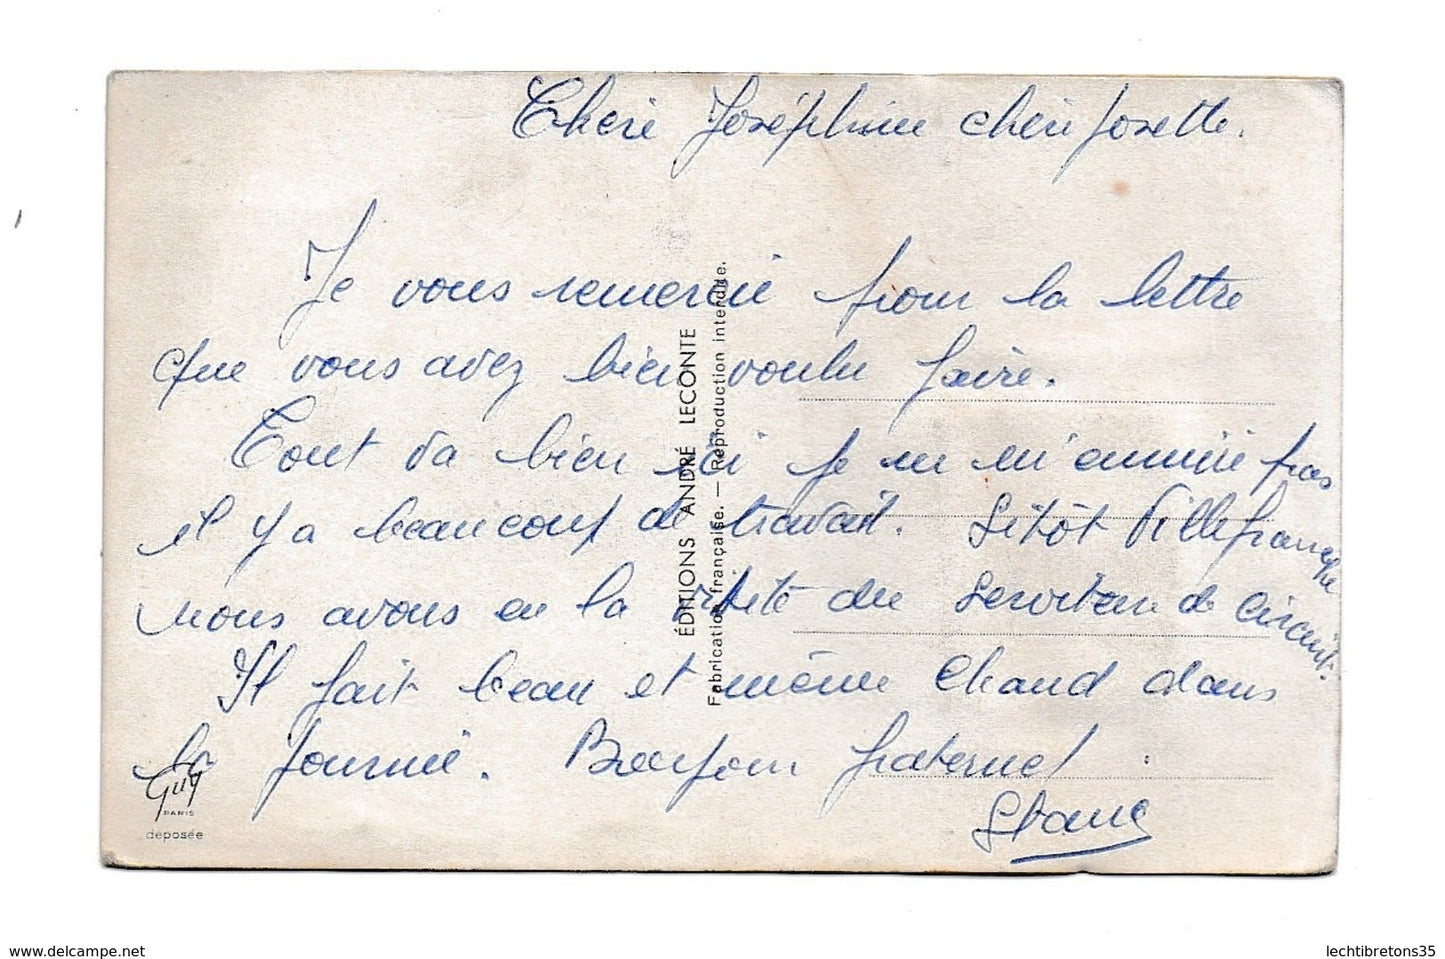 Chère Joséphine chère Josette.
Je vous remercie pour la lettre
que vous avez bien voulu faire.
Tout va bien ici je ne m'ennuie pas
il y a beaucoup de travail. Sitôt Villefranche
nous avons eu la visite du de Circuit.
Il fait beau et même Chaud dans
la Journée. Bonjour fraternel.
Stane
ÉDITIONS ANDRÉ LECONTE
Fabrication française. — Reproduction interdite.
Guy
PARIS
deposée
www.delcampe.net
lechtibretons35